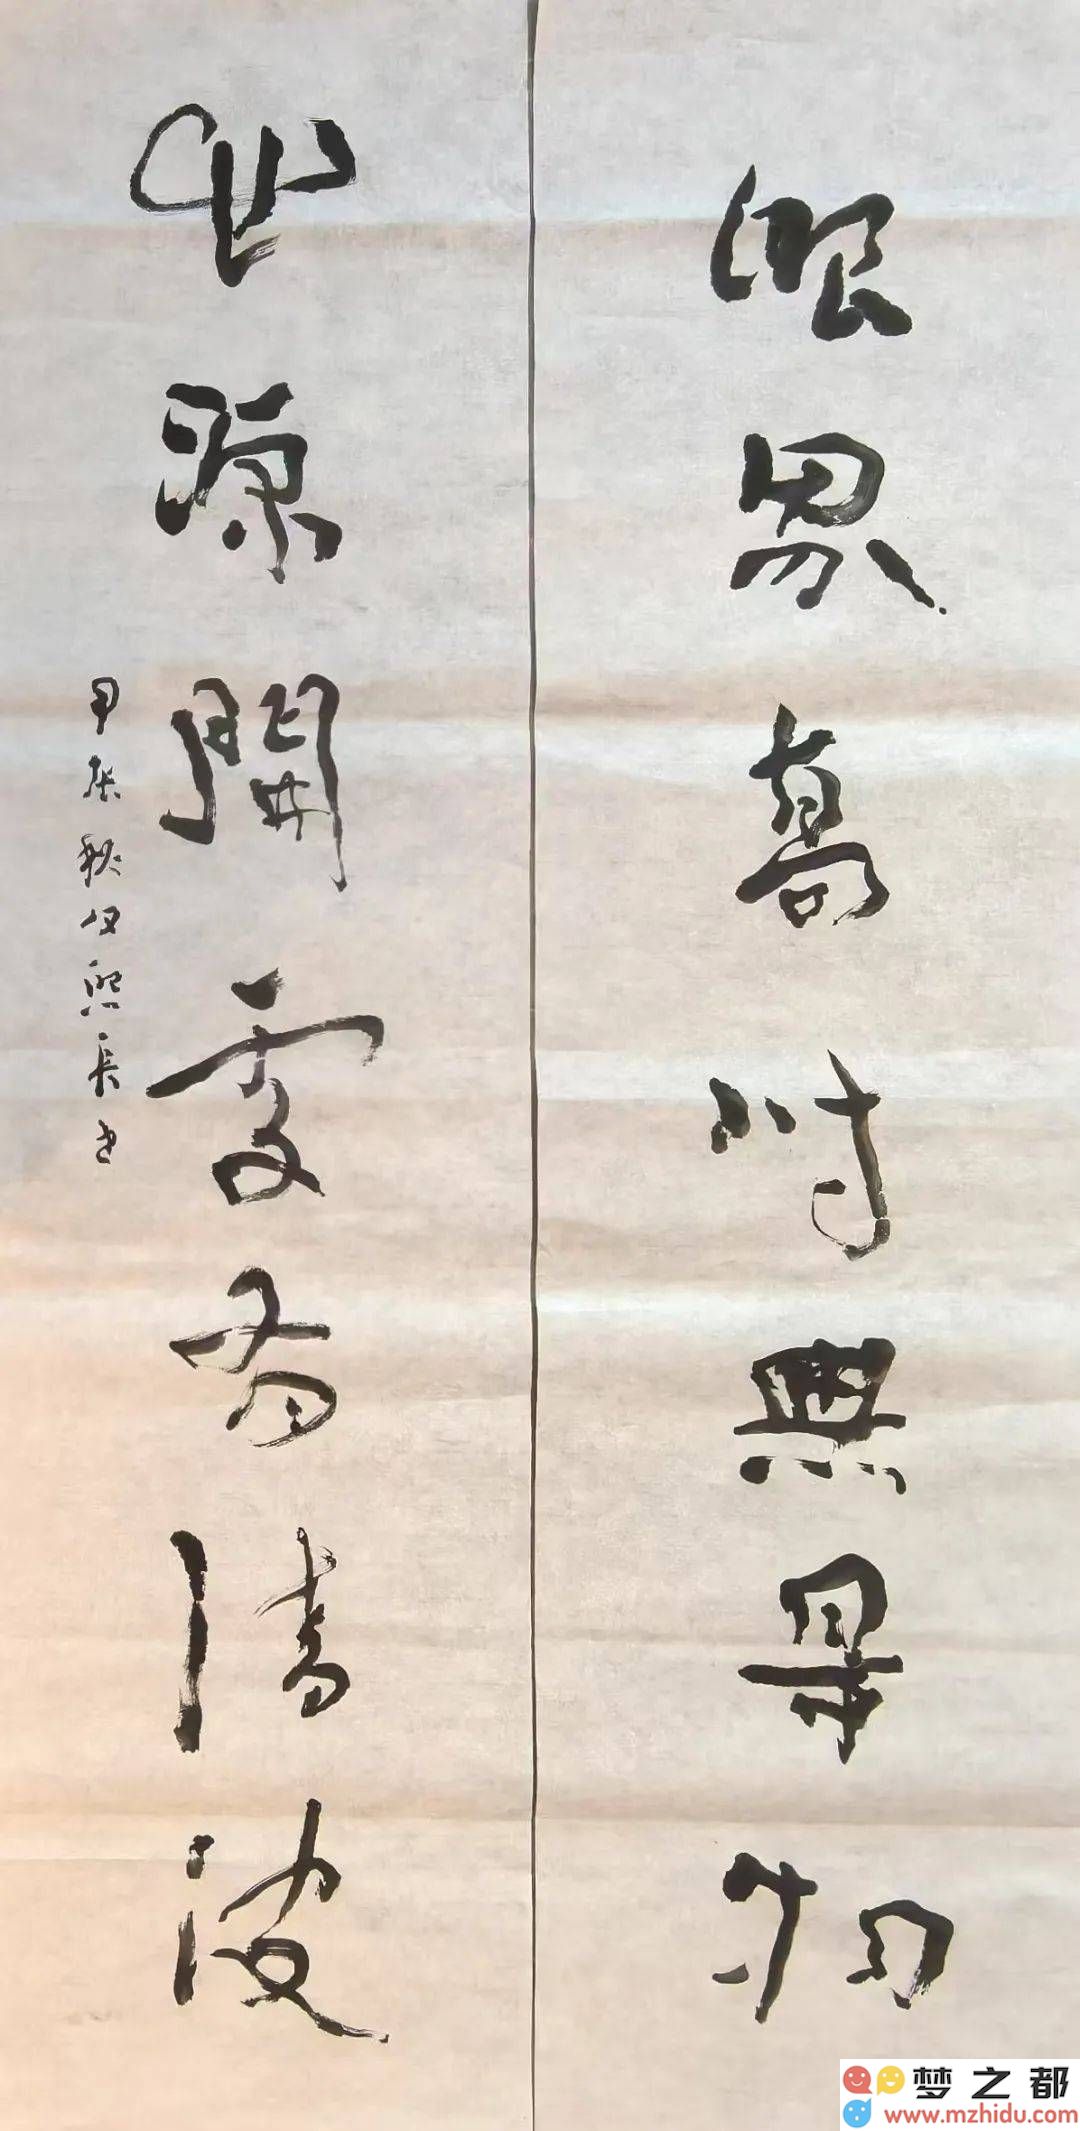 眼界高時無㝵物
心源開處有清波
甲辰秋熙長书
梦之都
www.mzhidu.com